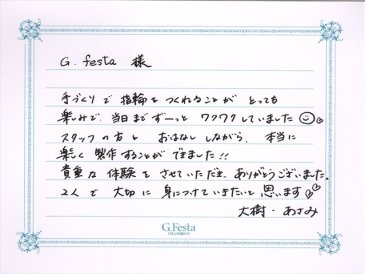 G. festa 様
手づくりで指輪をつくれることがとっても
楽しみで、当日までずーっとワクワクしていました
スタッフの方とおはなししながら、本当に
楽しく製作することができました!!
貴重な体験をさせていただき、ありがとうございました。
2人で大切に身につけていきたいと思います
大樹・あさみ
G.Festa